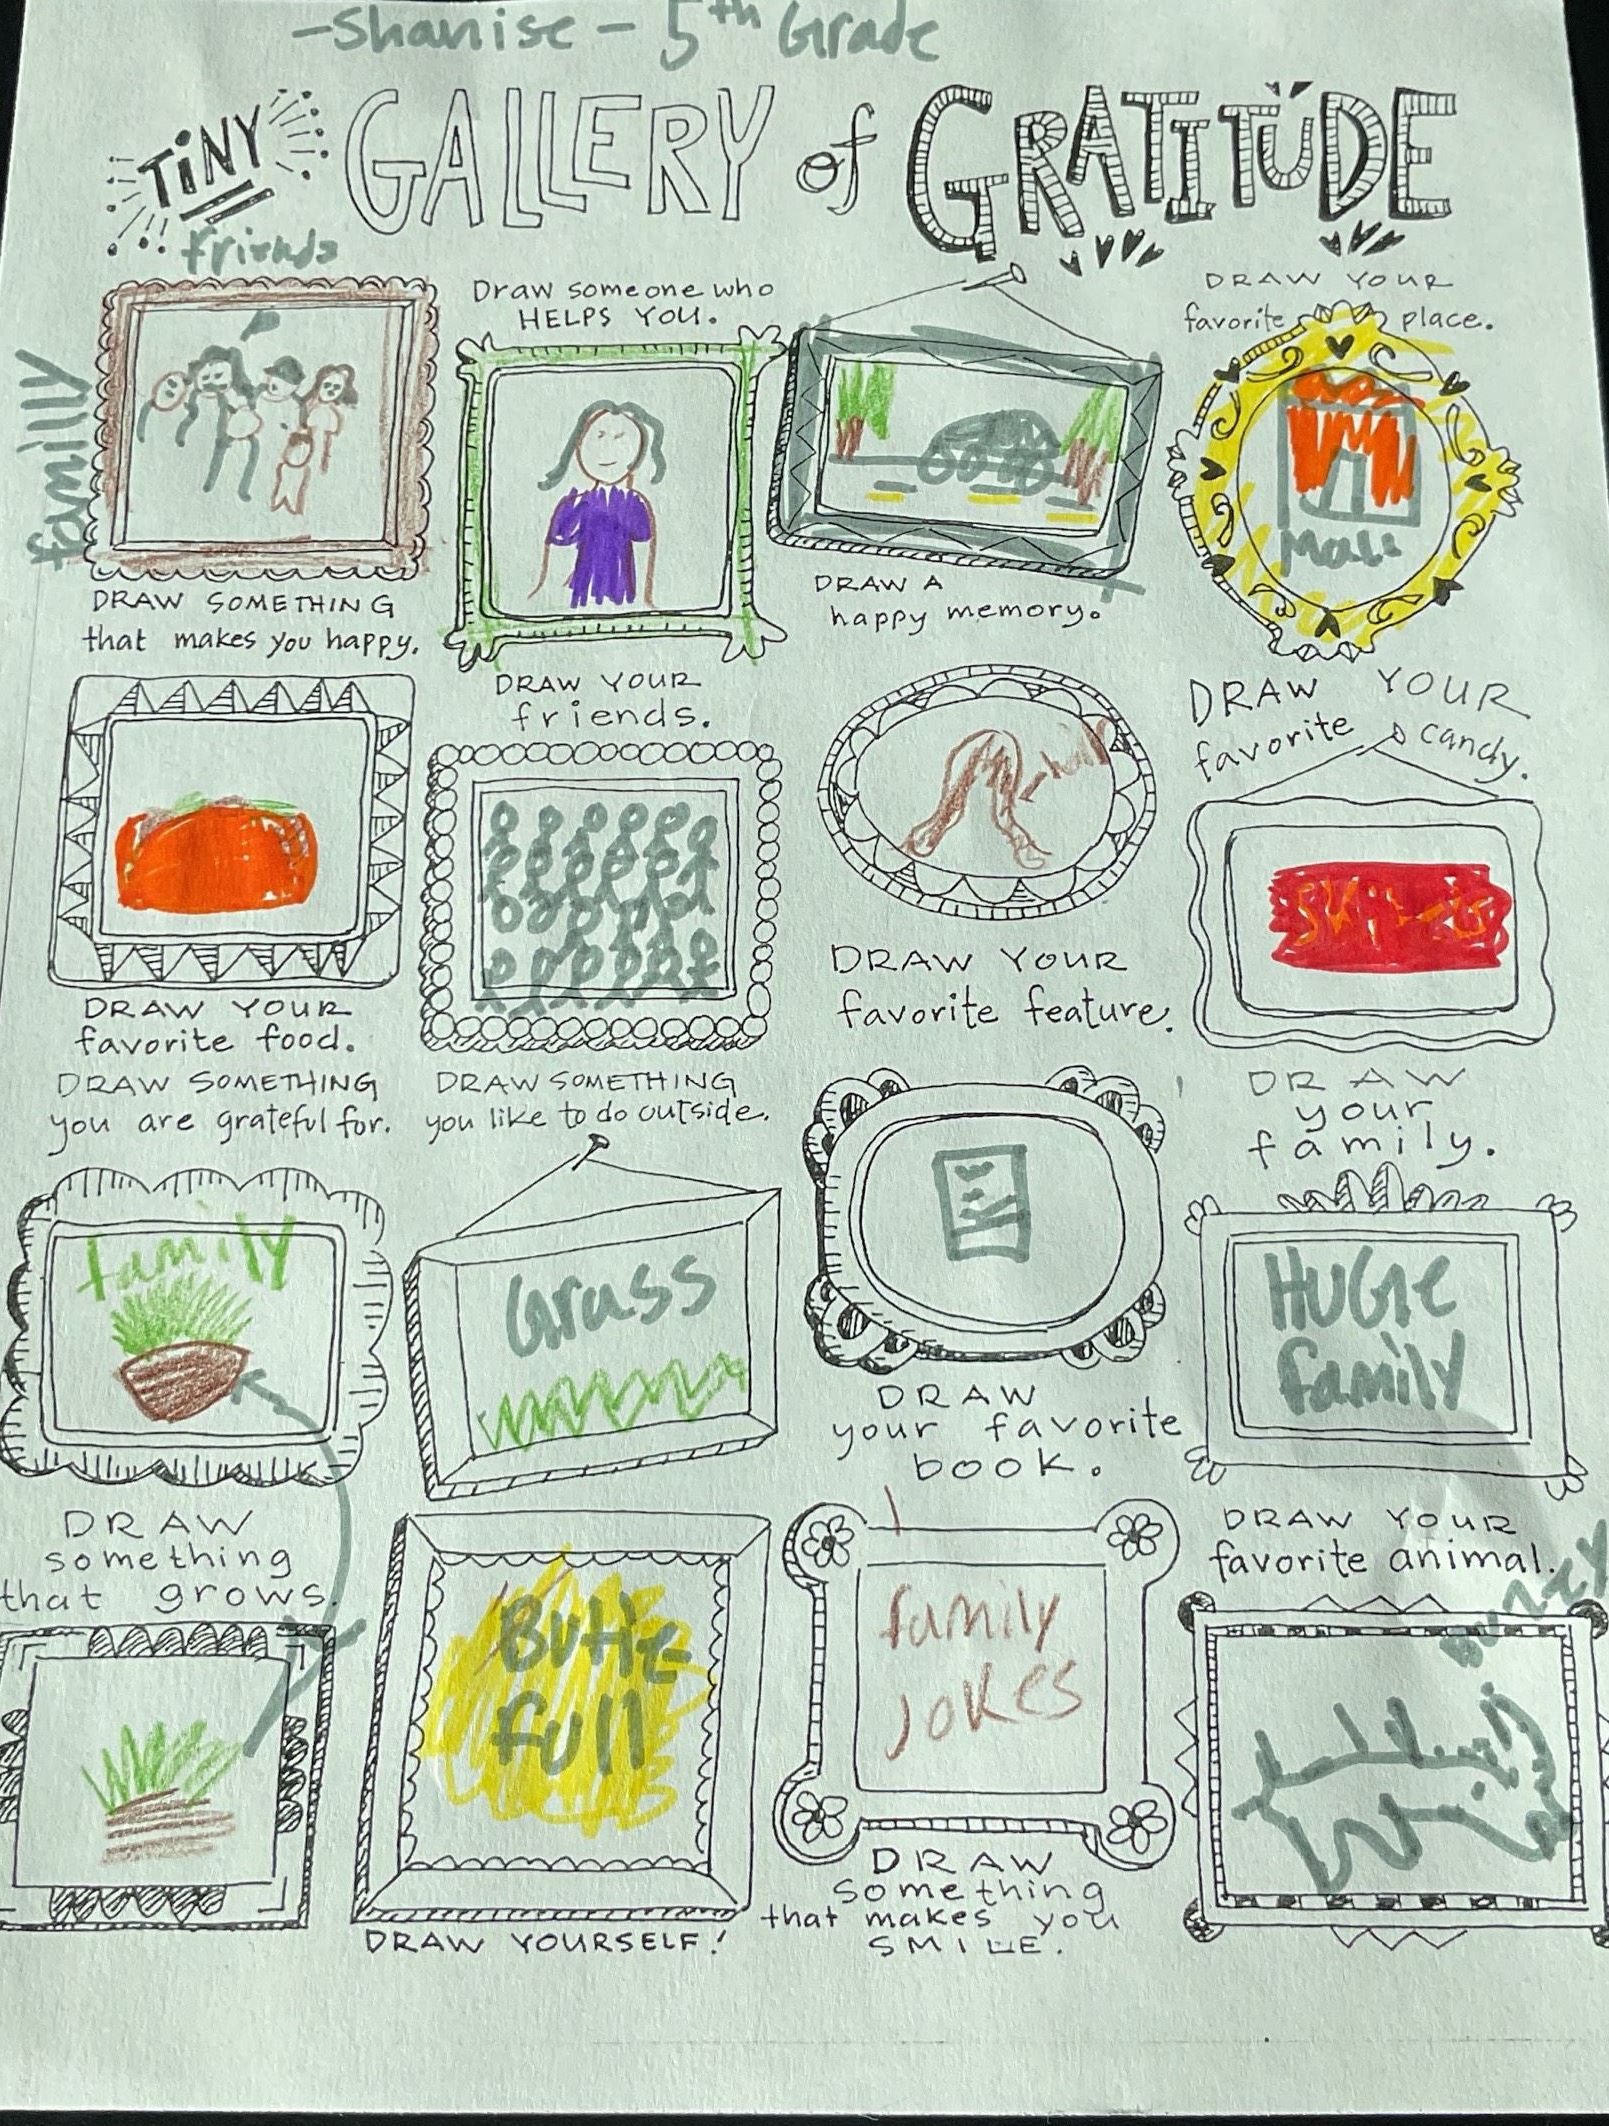 -Shanise - 5th Grade
TiNY GALLERY of GRATITUDE
friends
familly
DRAW SOMETHING
that makes you happy.
Draw someone who
HELPS YOU.
DRAW A
happy memory.
DRAW YOUR
favorite place.
Mall
DRAW YOUR
favorite food.
DRAW YOUR
friends.
hair
DRAW YOUR
favorite feature.
DRAW YOUR
favorite candy.
DRAW SOMETHING
you are grateful for.
family
DRAW SOMETHING
you like to do outside.
Grass
DRAW
your favorite
book.
DRAW
your
family.
HUGE
family
DRAW
something
that grows.
Butie
full
DRAW YOURSELF!
family
jokes
DRAW
something
that makes you
SMILE.
DRAW YOUR
favorite animal.